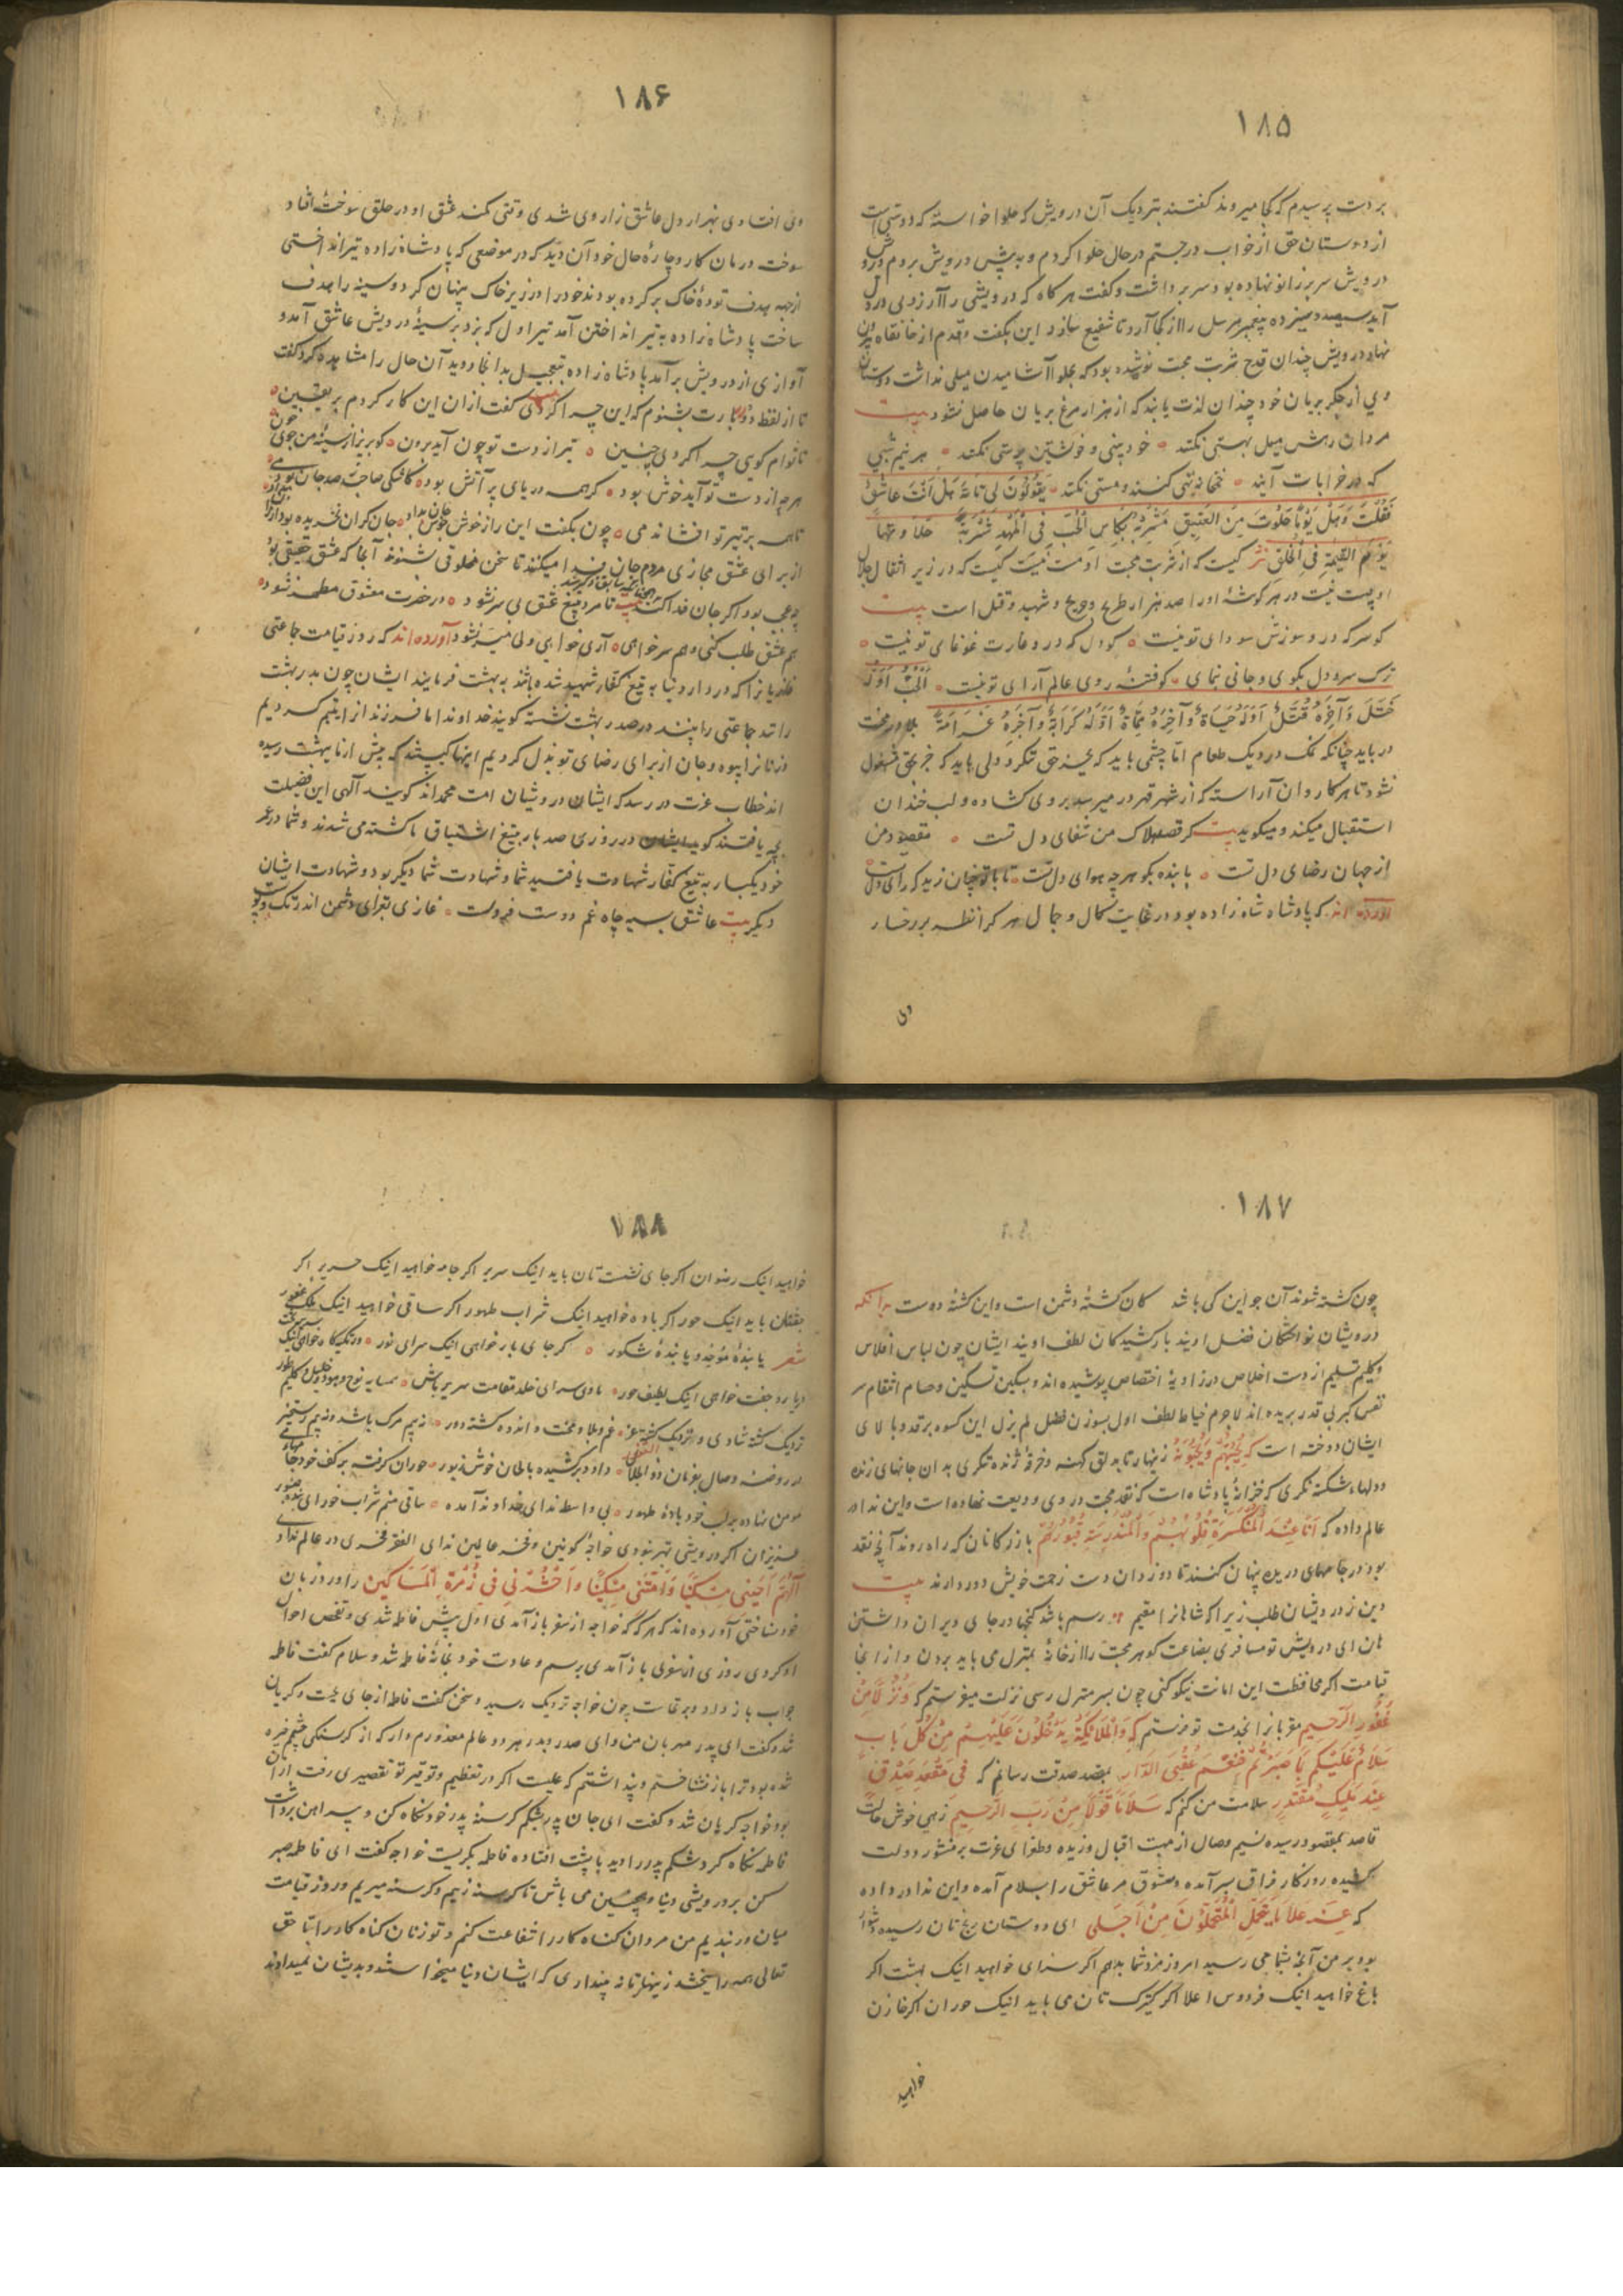 ۱۸۵
بردست پرسیدم که کجا میروند گفتند بنزدیک آن درویش که حلوا خواسته که دوستی است
از دوستان حق از خواب درجستم در حال حلوا کردم و به پیش درویش بردم
درویش سر بر زانو نهاده بود سر برداشت و گفت هرگاه که درویشی را آرزوی در دل
آید سیصد و سیزده پیغمبر مرسل را از کجا آرد تا شفیع سازد این بگفت و قدم از خانقاه بیرون
نهاد درویش چندان قدح شربت محبت نوشیده بود که بحلوا آشامیدن میلی نداشت دوستان
وی از جگر بریان خود چندان لذت یابند که از هزار مرغ بریان حاصل نشود بیت
مردان رهش میل بهستی نکنند خودبینی و خویشتن پرستی نکنند هر نیم شبی
که در خرابات آیند خمخانه تهی کنند و مستی نکنند یَقُولُونَ لِی تَاللهِ هَلْ اَنْتَ عَاشِقُ
فَقُلْتُ وَهَلْ یَوْمًا خَلَوْتُ مِنَ الْعَشِیقِ شَرِبْتُ بِکَاسِ الْحُبِّ فِی الْمَهْدِ شَرْبَةً
یَوْمَ الْقِیٰمَةِ فِی الْحَلْقِ نثر کیست که از شربت محبت او مست نیست کیست که در زیر اثقال جلال
او پست نیست در هر گوشهٔ او را صد هزار طریح و جریح و شهید و قتیل است بیت
کو سر که درو سوزش سودای تو نیست کو دل که درو غارت غوغای تو نیست
ترک سر و دل بگوی و جانی نمای کو فتنهٔ روی عالم آرای تو نیست اَلْحُبُّ اَوَّلُهُ
خَتَلٌ وَآخِرُهُ قَتَلٌ اَوَّلُهُ حَیَاةٌ وَآخِرُهُ مَمَاةٌ اَوَّلُهُ کَرَامَةٌ وَآخِرُهُ غَرَامَةٌ بلا در محبت
در باید چنانکه نمک در دیک طعام اما چشمی باید که بجز حق ننگرد و دلی باید که جز بحق مشغول
نشود تا هر کاروان آراسته که از شهر قهر در میرسد بروی گشاده و لب خندان
استقبال میکند و میگوید بیت گر قصد هلاک من شفای دل تست مقصود من
از جهان رضای دل تست با بنده بگو هر چه هوای دل تست تا با تو چنان زید که رای دل تست
آورده اند که پادشاه شاه زاده بود در غایت کمال و جمال هر کرا نظر بر رخسار
وی
۱۸۶
وی افتادی بهزار دل عاشق زار وی شدی وقتی کمند عشق او در حلق سوختهٔ افتاد
سوخت درمان کار و چارهٔ حال خود آن دید که در موضعی که پادشاه زاده تیر انداختی
از جهه هدف تودهٔ خاک بر کرده بودند خود را در زیر خاک پنهان کرد و سینه را هدف
ساخت پادشاه زاده به تیر انداختن آمد تیر اول که بزد بر سینهٔ درویش عاشق آمد و
آوازی از درویش برآمد پادشاه زاده بتعجیل بدانجا دوید آن حال را مشاهده کرد گفت
تا از لفظ دُرر بارت بشنوم که این چرا کردی گفت از ان این کار کردم بیقین
تا توام گوی چرا کردی چنین تیر از دست تو چون آید برون گو بریز از سینهٔ من جوی خون
هر چه از دست تو آید خوش بود گر همه دریای پر آتش بود کاشکی صاحب صد جان بودمی
تا همه بر تیر تو افشاندمی چون بگفت این راز خوش خوش جان بداد جان گران بخریده بود ارزان بداد
از برای عشق مجازی مردم جان فدا میکنند تا سخن مخلوقی بشنوند آنجا که عشق حقیقی بود
چه عجب بود اگر جان فدا کنند بیت تا مرد بتیغ عشق بی سر نشود در حضرت معشوق مطهر نشود
هم عشق طلب کنی و هم سر خواهی آری خواهی ولی میسر نشود آورده اند که روز قیامت جماعتی
غازیانرا که در دار دنیا به تیغ کفار شهید شده باشند به بهشت فرمایند ایشان چون بدر بهشت
رسند جماعتی را بینند در صدر بهشت نشسته گویند خداوندا ما فرزند از یتیم کردیم
و زنانرا بیوه و جان از برای رضای تو بذل کردیم اینها کیستند که پیش از ما ببهشت رسیده
اند خطاب عزت در رسد که ایشان درویشان امت محمداند گویند آلهی این فضیلت
بچه یافتند گوید ایشان در روزی صد بار بتیغ اشتیاق ما کشته می شدند و شما در عمر
خود یکبار به تیغ کفار شهادت یافتید شما و شهادت شما دیگر بود و شهادت ایشان
دیگر بیت عاشق بسیر چاه غم دوست فروست غازی بغزای دشمن اندر تک و پوست
۱۸۷
چون کشته شوند آن جو این کی باشد کان کشتهٔ دشمن است و این کشتهٔ دوست بدانکه
درویشان نواختگان فضل اویند بارکشیدگان لطف اویند ایشان چون لباس افلاس
و گلیم تسلیم از دست اخلاص در زاویهٔ اختصاص پوشیده اند و بسکین تسکین و حسام انتقام سر
نفس کبر بی قدر بریده اند لاجرم خیاط لطف اول بسوزن فضل لم یزل این کسوه بر قد و بالای
ایشان دوخته است که یُحِبُّهُمْ وَیُحِبُّونَهُ زینهار تا بدلق کهنه و خرقهٔ ژنده ننگری بدان جانهای زنده
و دلهاء شکسته نگری که خزانهٔ پادشاه است که نقد محبت در وی ودیعت نهاده است و این ندا در
عالم داده که اَنَا عِنْدَ الْمُنْکَسِرَةِ قُلُوبُهُمْ وَالْمُنْدَرِسَةِ قُبُورُهُمْ بازرگانان که راه روند آنچ نقد
بود در جامهای دریده پنهان کنند تا دزدان دست زحمت خویش دور دارند بیت
دین ز درویشان طلب زیرا که شاهانرا مقیم رسم باشد گنجها در جای ویران داشتن
هان ای درویش تو مسافری بضاعت گوهر محبت را از خانهٔ بمنزل می باید بردن و از انجا
قیامت اگر محافظت این امانت نیکو کنی چون بسر منزل رسی نزلت میفرستم که نُزُلًا مِنْ
غَفُورٍ الرَّحِیمِ مقربانرا بخدمت تو فرستم که وَالْمَلَائِکَةُ یَدْخُلُونَ عَلَیْهِمْ مِنْ کُلِّ بَابٍ
سَلَامٌ عَلَیْکُمْ بِمَا صَبَرْتُمْ فَنِعْمَ عُقْبَى الدَّارِ بمقعد صدقت رسانم که فِی مَقْعَدِ صِدْقٍ
عِنْدَ مَلِیکٍ مُقْتَدِرٍ سلامت من کنم که سَلَامٌ قَوْلًا مِنْ رَبٍّ الرَّحِیمِ زهی خوش حالت
قاصد بمقصود رسیده نسیم وصال از مهب اقبال وزیده و طغرای عزت بر منشور دولت
کشیده روزگار فراق بسر آمده و معشوق مر عاشق را بسلام آمده و این ندا در داده
که عِنْدَ عَلَا مَا یَتَحَمَّلِ الْمُتَحَمِّلُونَ مِنْ اَجَلِی ای دوستان رنج تان رسیده
بود بر من آنچه بشما می رسید امروز مزد شما بدهم اگر سرای خواهید اینک بهشت اگر
باغ خواهید اینک فردوس اعلا اگر کنیزک تان می باید اینک حوران اگر خازن
خواهید
۱۸۸
خواهید اینک رضوان اگر جای نشست تان باید اینک سریر اگر جامه خواهید اینک حریر اگر
جفتتان باید اینک حور اگر باده خواهید اینک شراب طهور اگر ساقی خواهید اینک ملک غفور
شعر یا بندهٔ مؤبد و یا بندهٔ شکور گر جای بار خواهی اینک سرای نور
دیارد جفت خواهی اینک لطیف حور ماوی سرای خلد مقامت سریر باش همسایه نوح و هود و خلیل و کلیم طور
نزدیک گشته شادی و نزدیک گشته عز غم و بلا و محنت و اندوه گشته دور
در روضهٔ وصال بفرمان ذو الجلال داود برکشیده بالحان خوش زبور حوران گرفته بر کف خود جامهای
مومن نهاده بر لب خود بادهٔ طهور بی واسطه ندای خداوند آمده ساقی منم شراب خور ای بندهٔ صبور
عزیزان اگر درویشی بهتر نبودی خواجهٔ کونین و فخر عالمین ندای الفقر فخری در عالم ندادی
اَللّٰهُمَّ اَحْیِنِی مِسْکِینًا وَاَمِتْنِی مِسْکِینًا وَاحْشُرْنِی فِی زُمْرَةِ الْمَسَاکِینِ را ورد زبان
خود نساختی آورده اند که هرگه خواجه از سفر باز آمدی اول پیش فاطمه شدی و تفحص احوال
او کردی روزی از سفری باز آمدی برسم و عادت خود بخانهٔ فاطمه شد و سلام گفت فاطمه
جواب باز داد و برنخاست چون خواجه نزدیک رسید و سخن گفت فاطمه از جای بجست و گریان
شد و گفت ای پدر مهربان من و ای صدر و بدر هر دو عالم معذورم دار که از گرسنگی چشم خیره
شده بود ترا باز نشناختم و پنداشتم که علیست اگر در تعظیم و توقیر تو تقصیری رفت از آن
بود خواجه گریان شد و گفت ای جان پدر بشکم گرسنهٔ پدر خود نگاه کن و پیراهن برداشت
فاطمه نگاه کرد شکم پدر را دید با پشت افتاده فاطمه بگریست خواجه گفت ای فاطمه صبر
کن بر درویشی دنیا و همچنین می باش تا گرسنه زییم و گرسنه میریم و روز قیامت
میان در بندیم من مردان گناه کار را شفاعت کنم و تو زنان گناه کار را تا حق
تعالی همه را ببخشد زینهار تا نه پنداری که ایشان دنیا میخواستند و بدیشان نمیدادند